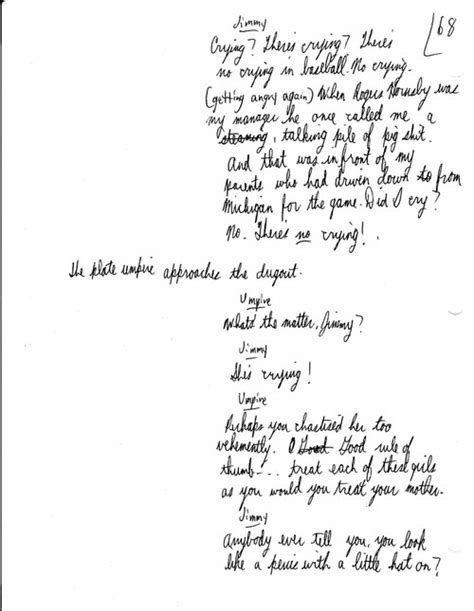 68
Jimmy
Crying? There's crying? There's
no crying in baseball. No crying.
(getting angry again) When Rogers Hornsby was
my manager he once called me a
steaming, talking pile of pig shit.
And that was in front of my
parents who had driven down to from
Michigan for the game. Did I cry?
No. There's no crying!
The plate umpire approaches the dugout.
Umpire
What's the matter, Jimmy?
Jimmy
She's crying!
Umpire
Perhaps you chastised her too
vehemently. Good rule of
thumb... treat each of these girls
as you would you treat your mother.
Jimmy
Anybody ever tell you, you look
like a penis with a little hat on?